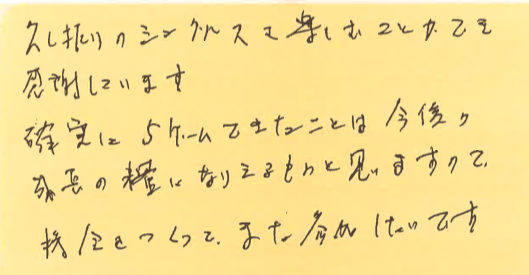 久し振りのシングルスを楽しむことができ
感謝しています
確実に5ゲームできたことは今後の
成長の糧になりえるものと思いますので、
機会をつくって、また参加したいです